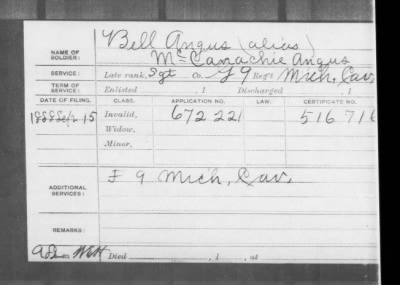 Bell Angus (alias)
NAME OF SOLDIER: McConachie Angus
SERVICE: Late rank, Sgt Co. G 9 Reg't Mich. Cav.
TERM OF SERVICE: Enlisted , 1 Discharged , 1
DATE OF FILING. CLASS. APPLICATION NO. LAW. CERTIFICATE NO.
1888 Sep 15 Invalid, 672 221 516 716
Widow,
Minor,
ADDITIONAL SERVICES: F 9 Mich, Cav.
REMARKS:
Died , 1 , at